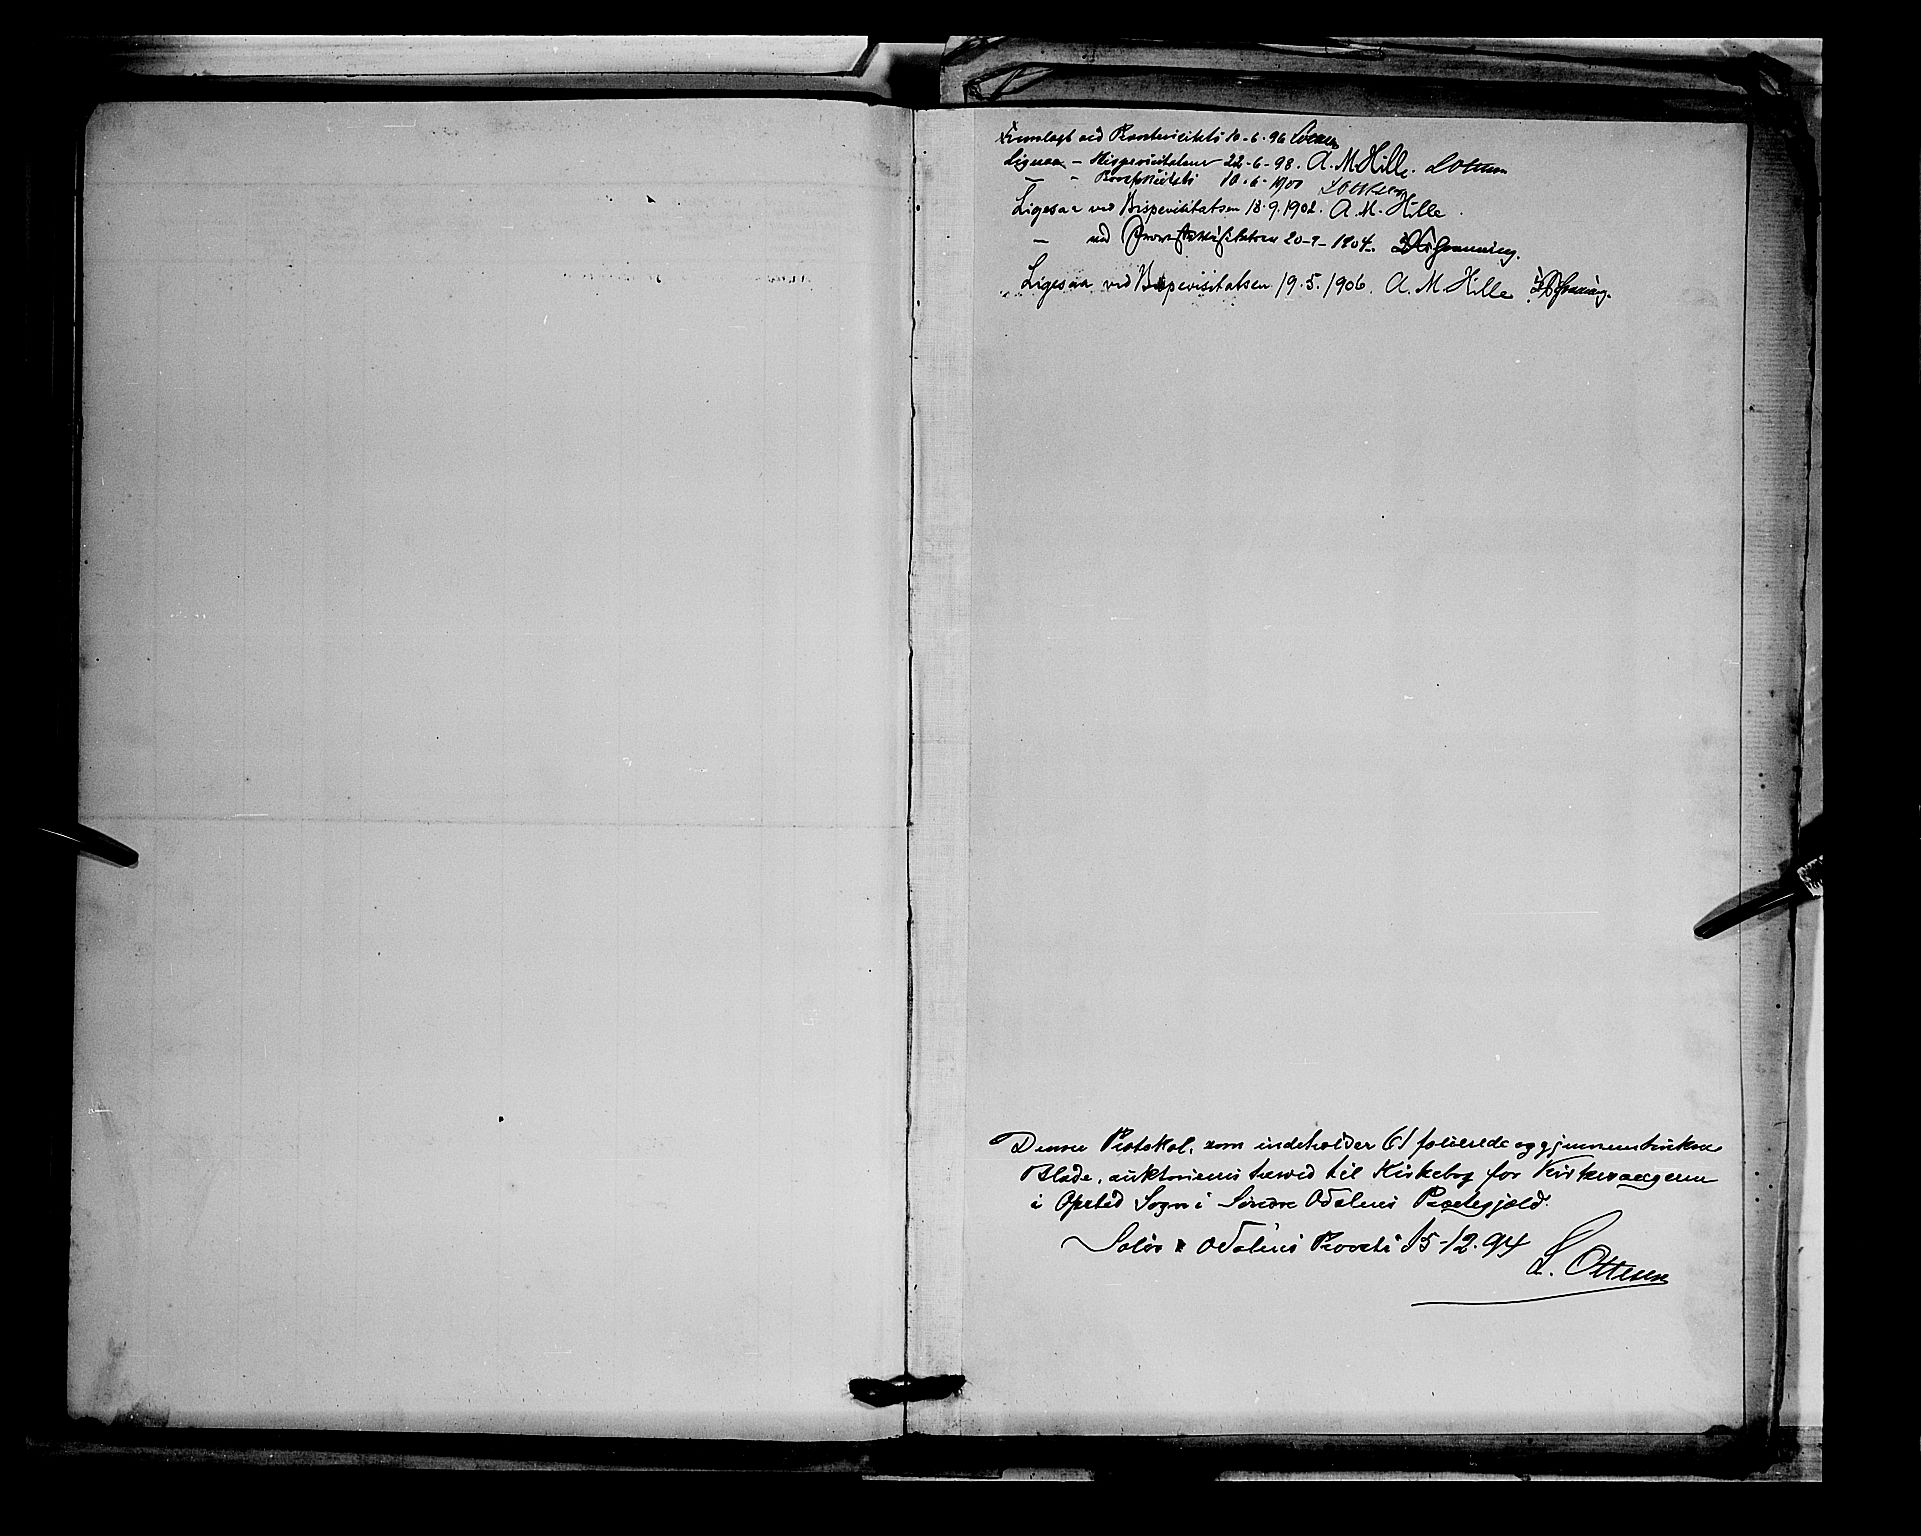 Fremlagt ved Provstevisitats 10-6-96 LOttesen
Ligesaa - Bispevisitatsen 22-6-98. A. M. Hille. LOttesen
— - Provstevisitats 10-6-1900 LOttesen
Ligesaa ved Bispevisitatsen 18.9.1902. A. M. Hille.
— ved Provstevisitatsen 20-9-1904.
Ligesaa ved Bispevisitatsen 19.5.1906. A. M. Hille
Denne Protokol, som indeholder 61 folierede og gjennemtrukne
Blade, auktoriseres herved til Kirkebog for Kirkesangeren
i Opstad Sogn i Søndre Odalens Præstegjeld.
Solør & Odalens Provsti 15-12-94
L. Ottesen